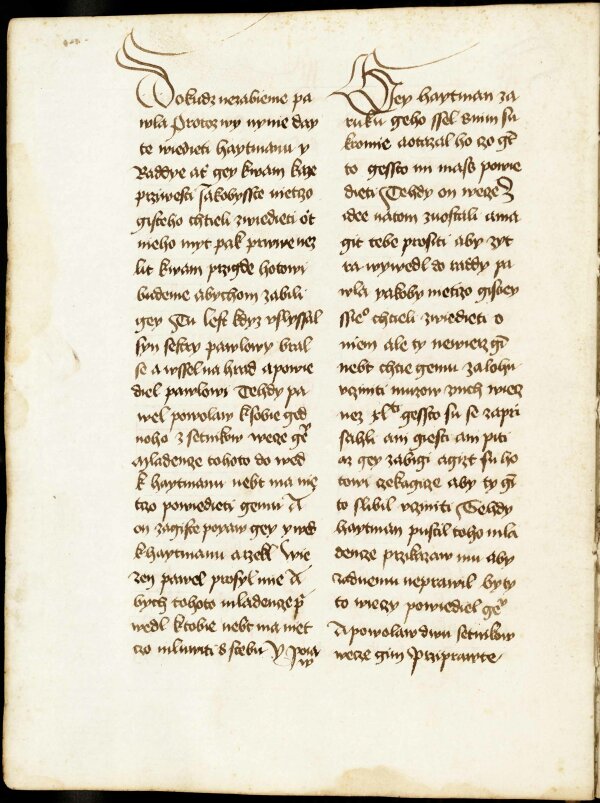 Dokudz nezabieme pa
wla Protoz wy nynie day
te wiedieti haytmanu y
Raddye at gey kwam kaze
prziwesti Jakobysste nietczo
gisteho chtieli zwiedieti ot
nieho myt pak prwe nez
lit kwam przigde hotowi
budeme abychom zabili
gey Tu lest kdyz vslyssal
syn sestry pawlowy bral
se a wssel na hrad a powie
diel pawlowi Tehdy pa
wel powolaw ksobie ged
noho z setnikow wecze gē
mladencze tohoto do wed
k haytmanu nebt ma nie
tczo powiedieti gemu A
on zagiste poyaw gey ywed
k haytmanu a rzekl Wie
zen pawel prosyl mne A
bych tohoto mladencze p
wedl k tobie nebt ma niet
czo mluwiti s tebu Y poya
w
Gey haytman za
ruku geho ssel s nim su
kromie aotazal ho czo gt
to gessto mi mass powie
dieti Tehdy on wecze Z
idee natom zuostali ama
git tebe prositi aby zyt
ra wywedl do raddy pa
wla yakoby nietczo gistey
ssieo chtieli zwiedieti o
niem ale ty newierz gī
nebt chtie gemu zalohu
vcziniti muzow znich wiecz
nez xl gessto su se zaprzi
sahli ani giesti ani piti
az gey zabigi agizt su ho
towi czekagicze aby ty gī
to slibil vcziniti Tehdy
haytman pustil toho mla
dencze przikazaw mu aby
zadnemu neprawil by ty
to wieczy powiediel gey
A powolaw dwu setnikow
wecze gim Przziprawte